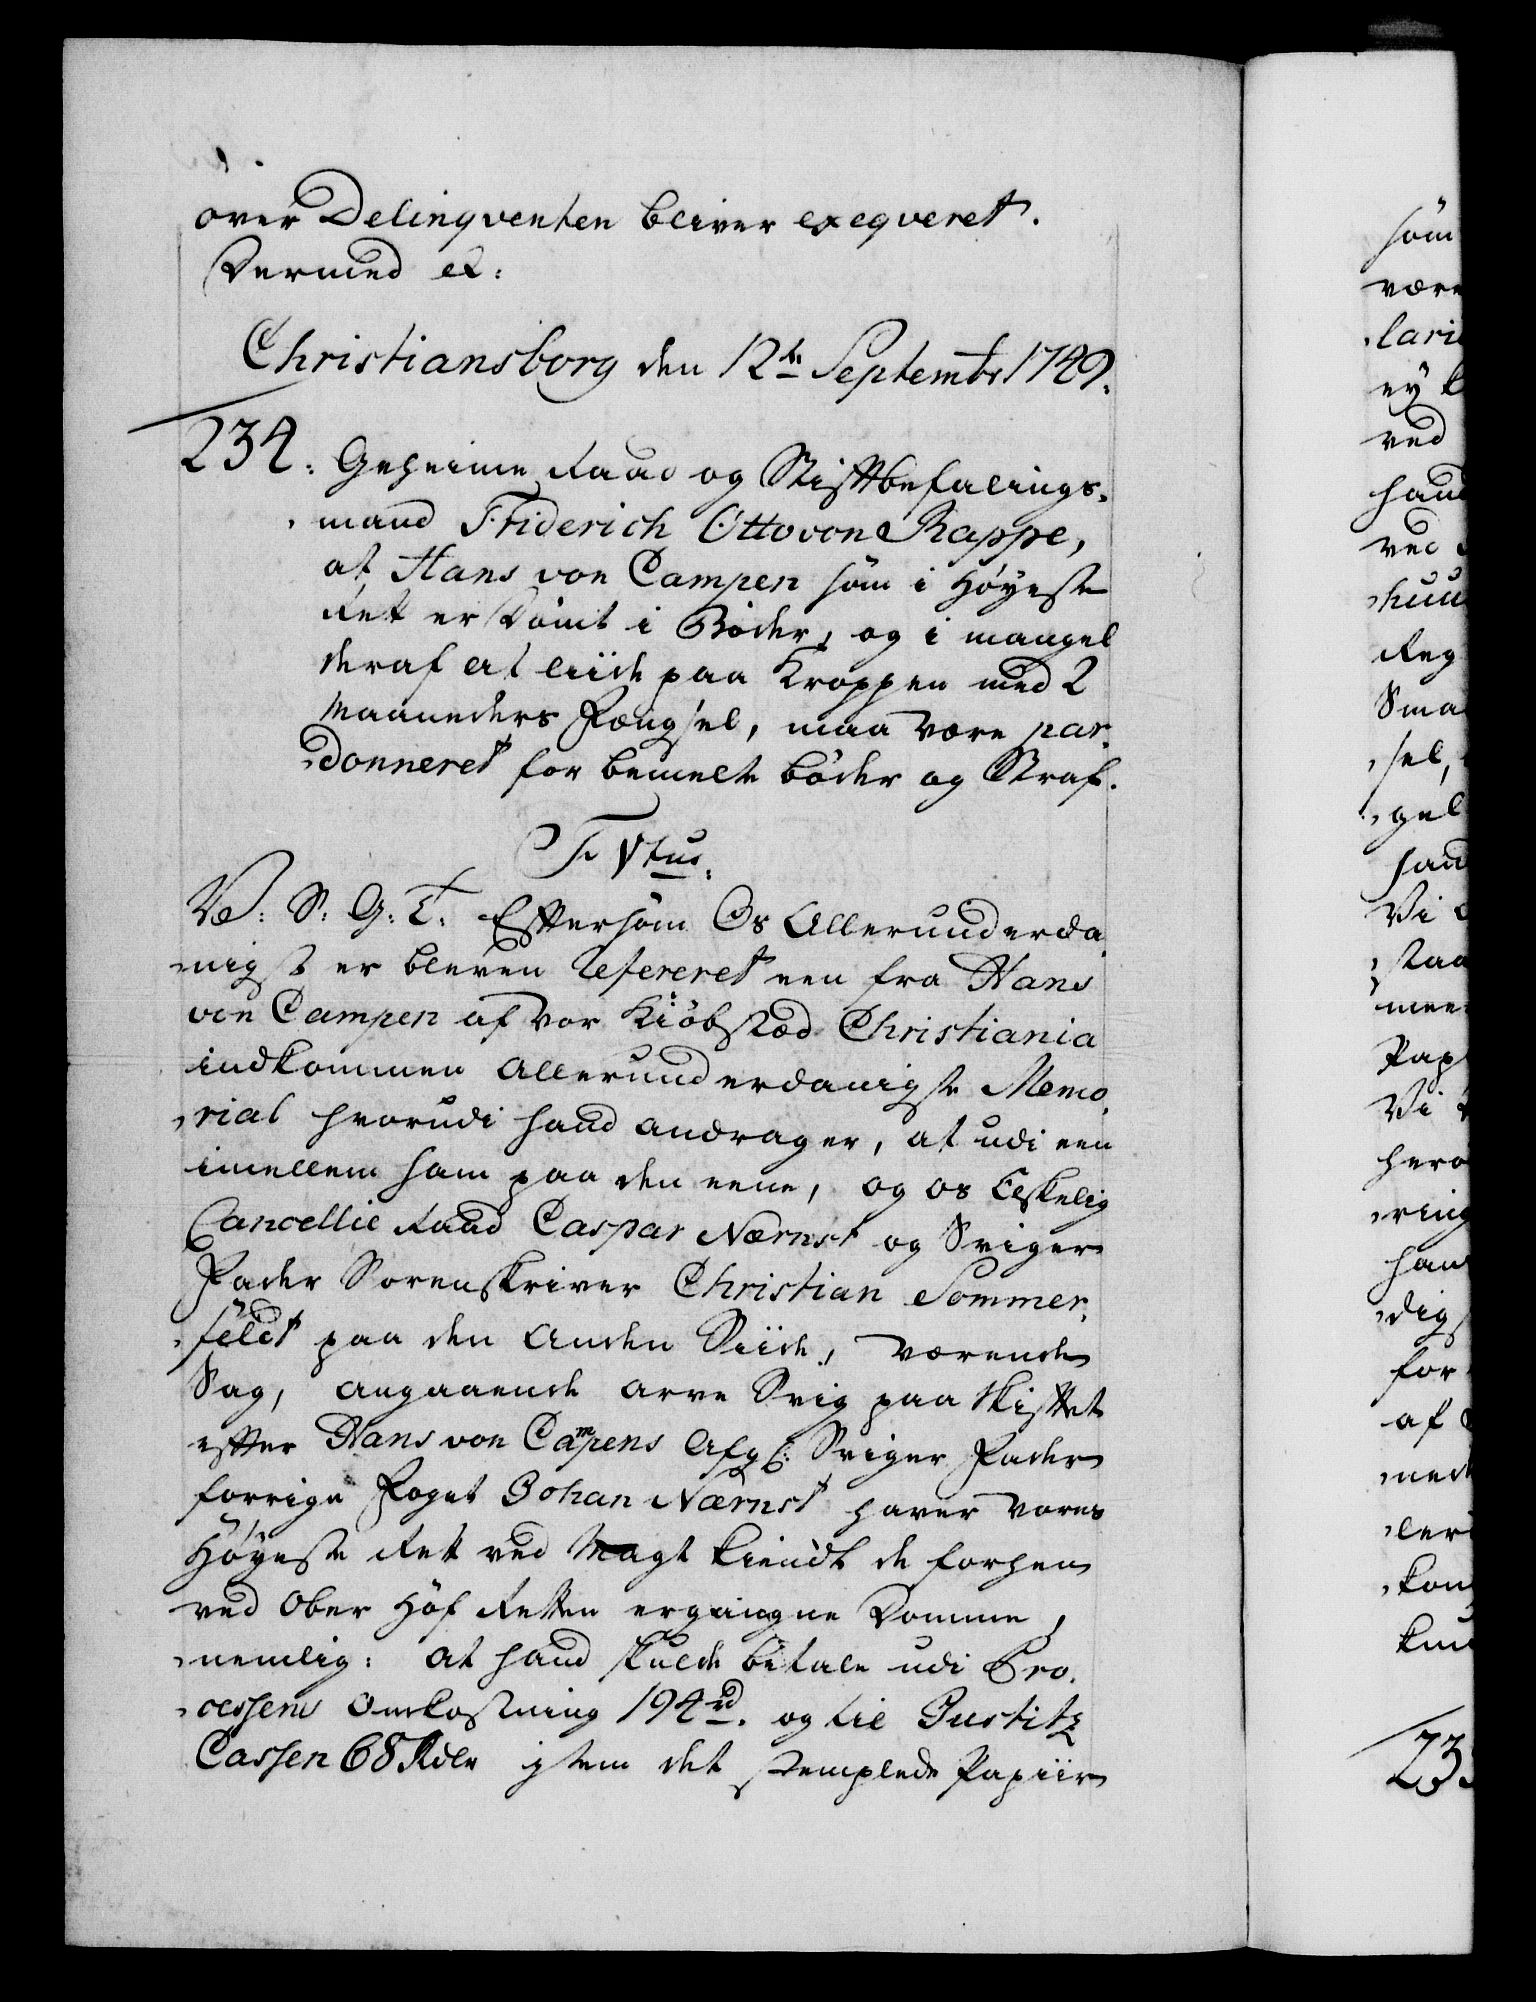 over Delinqventen bliver exeqveret.
Dermed etc:
Christiansborg den 12te Septembr 1749.
234. Geheime Raad og Stiftbefalings-
mand Friderich Otto von Rappe,
at Hans von Campen som i Høyeste
Ret er dømt i Bøder, og i mangel
deraf at liide paa Kroppen med 2
Maaneders Fængsel, maa være par-
donneret for bemelte bøder og Straf.
F. Vtus.
V: S: G: T: Eftersom Os Allerunderda-
nigst er bleven Refereret een fra Hans
von Campen af vor Kiøbstæd Christiania
indkommen allerunderdanigste Memo-
rial hvorudi hand andrager, at udi een
imellem ham paa den eene, og os Elskelig
Cancellie Raad Caspar Nærnst og Sviger
Fader Sorenskriver Christian Sommer-
feldt paa den anden Siide, værende
Sag, angaaende arve Svig paa Skiftet
efter Hans von Campens Afg: Sviger Fader
forrige Foget Johan Nærnst haver vores
Høyeste Ret ved Magt kiendt de forhen
ved Ober Hof Retten ergangne Domme,
nemlig: at hand skulde betale udi Pro-
cessens Omkostning 194 rd. og til Justitz
Cassen 68 Rdlr jtem det stemplede Papiir
som
være
lari
ey
ved
hand
ved
Reg
Sma
sel,
gel
hand
Vi
staa
mee
Pap
Vi
ring
han
dig
for
af
ler
kon
235